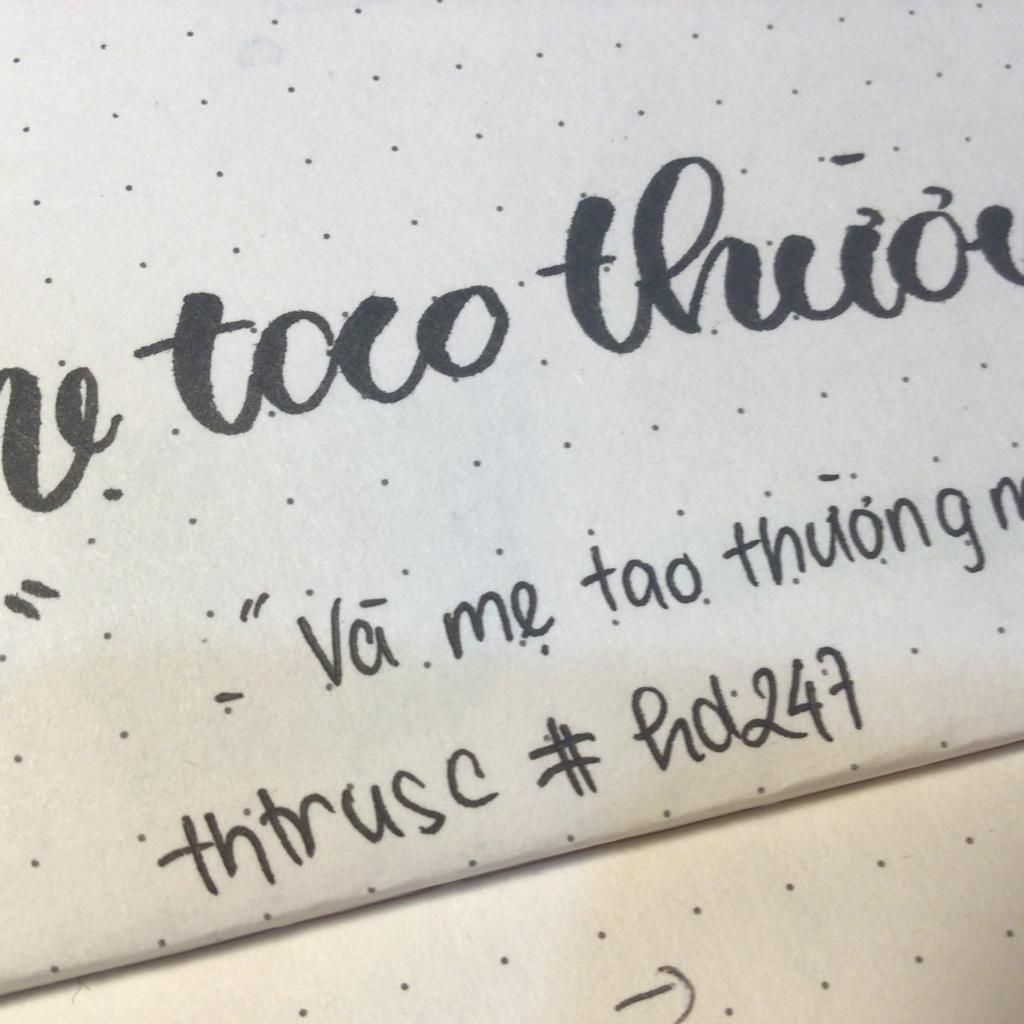 mẹ tao thườ
"Và mẹ tao thường m
thtrusc # hd247